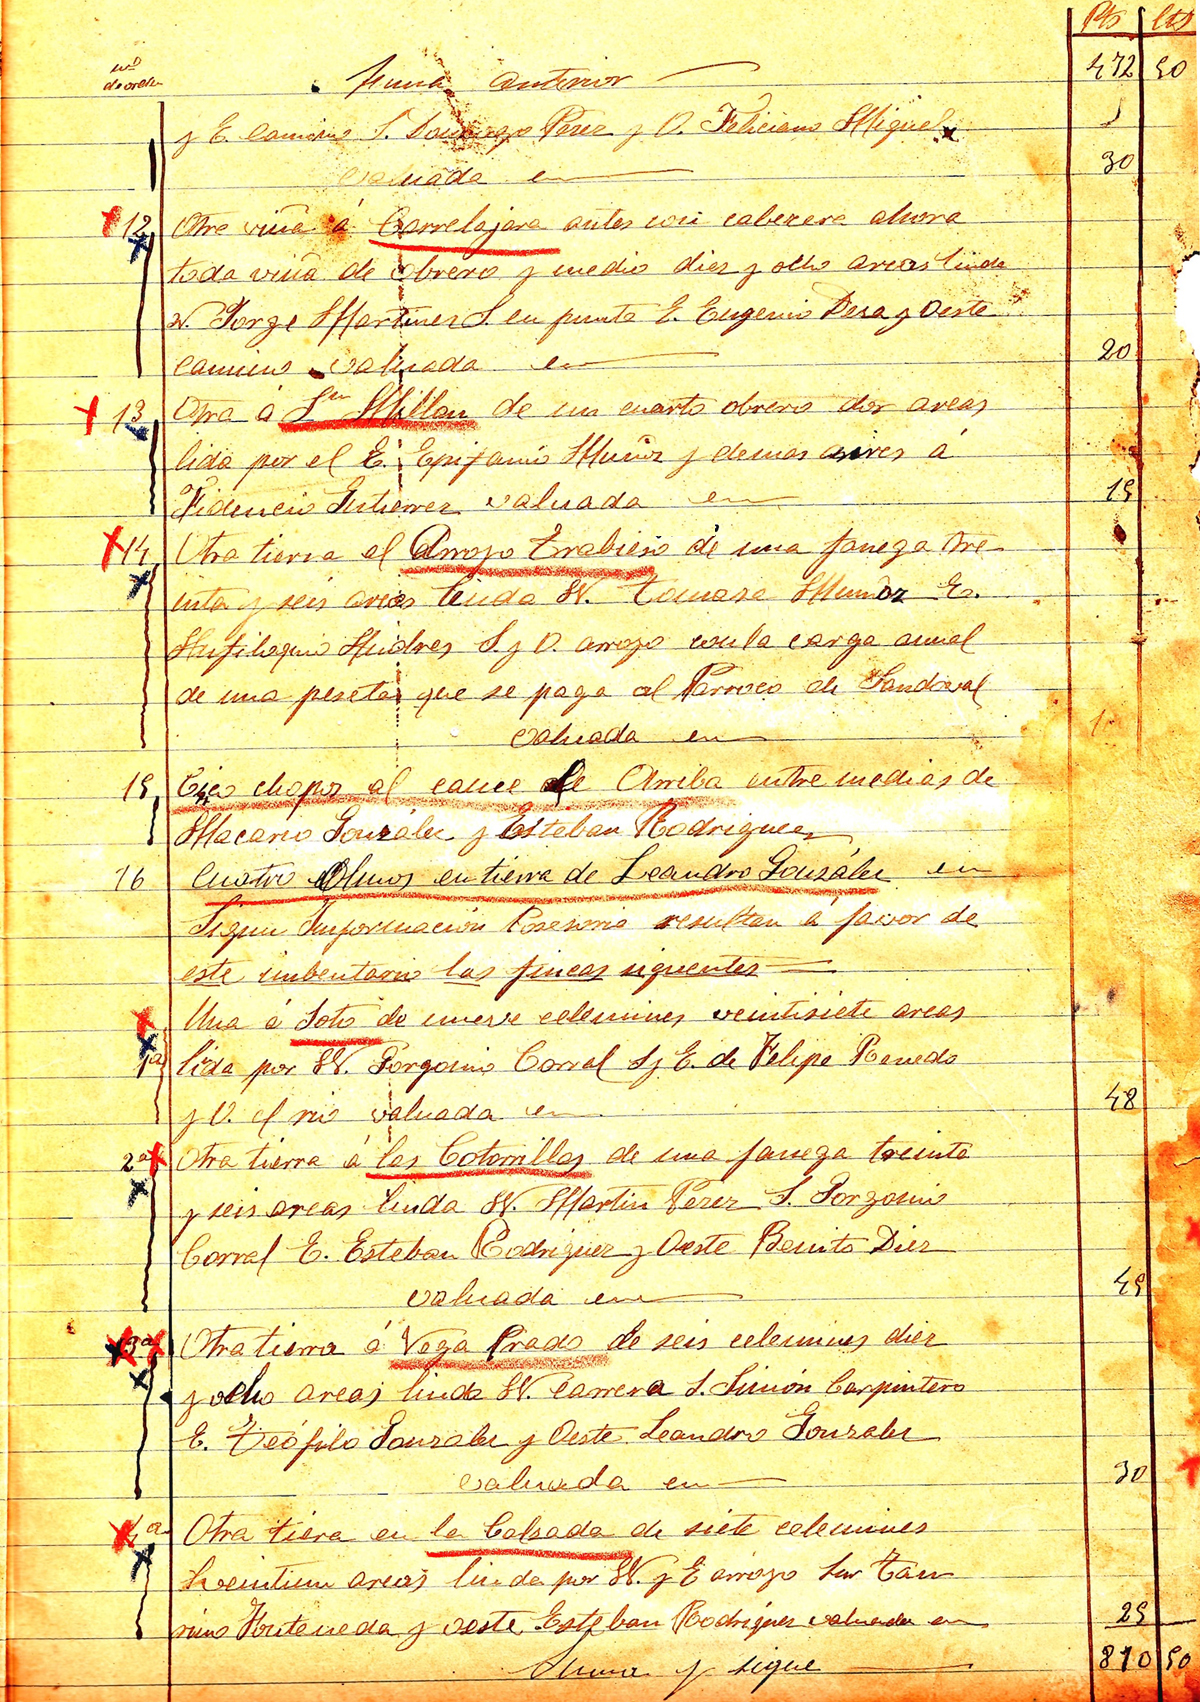 Pts Cts
nº de orden
Suma anterior 472 50
y E. camino S. Domingo Perez y O. Feliciano Miguel
valuada en 30
12 Otra viña á Carrelajara antes con cabezera ahora
toda viña de obrero y medio diez y ocho areas linda
N. Jorge Martinez S. en punta E. Eugenio Deza y Oeste
camino valuada en 20
13 Otra á Sn Millan de un cuarto obrero dos areas
lida por el E. Epifanio Muñoz y demas aires á
Fidencio Gutierrez valuada en 15
14 Otra tierra el Arroyo Trabieso de una fanega tre-
inta y seis areas linda N. Tomasa Muñoz E.
S. y O. arroyo con la carga anual
de una peseta que se paga al Parroco de Sandoval
valuada en
15 chopos al cauce de Arriba entre medias de
Macario González y Esteban Rodriguez
16 Cuatro Olmos en tierra de Leandro González en
Segun Informacion Posesoria resultan á favor de
este imbentario las fincas siguentes
Una á Soto de nueve celemines veintisiete areas
1ª lida por N. Porgonio Corral S y E. de Felipe Renedo
y O. el rio valuada en 48
2ª Otra tierra á las Cotorrillas de una fanega treinta
y seis areas linda N. Martin Perez S. Porgonio
Corral E. Esteban Rodriguez y Oeste Benito Diez
valuada en 45
3ª Otra tierra á Vega Prado de seis celemines diez
y ocho areas linda N. carrera S. Simón Carpintero
E. Teófilo Gonzalez y Oeste Leandro Gonzalez
valuada en 30
4ª Otra tiera en la Calzada de siete celemines
veintiun areas linda por N. y E arroyo Sur Tau
rino Fonteneda y oeste Esteban Rodriguez valuada en 25
Suma y sigue 810 50